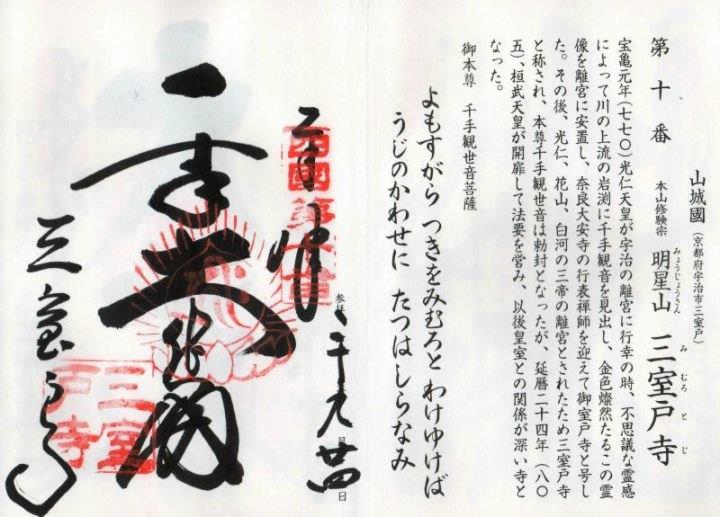 山城國(京都府宇治市三室戸)
第十番 本山修験宗 明星山 三室戸寺
みょうじょうさん みむろとじ
宝亀元年(七七〇)光仁天皇が宇治の離宮に行幸の時、不思議な霊感
によって川の上流の岩渕に千手観音を見出し、金色燦然たるこの霊
像を離宮に安置し、奈良大安寺の行表禅師を迎えて御室戸寺と号し
た。その後、光仁、花山、白河の三帝の離宮とされたため三室戸寺
と称され、本尊千手観世音は勅封となったが、延暦二十四年(八〇
五)、桓武天皇が開扉して法要を営み、以後皇室との関係が深い寺と
なった。
御本尊 千手観世音菩薩
よもすがら つきをみむろと わけゆけば
うじのかわせに たつはしらなみ
参拝 九月廿四日
三室戸寺
三室戸寺